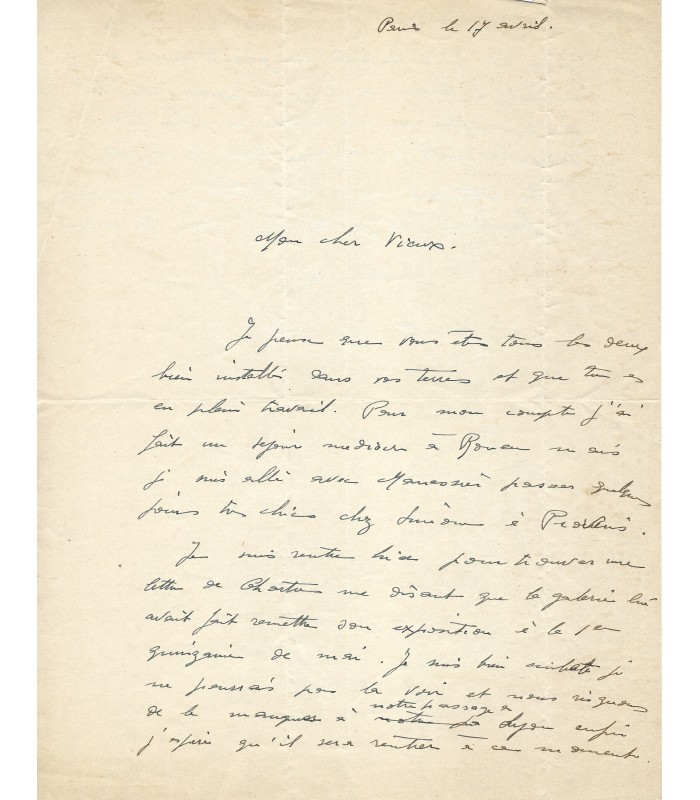 Paris le 17 avril.
Mon cher Vieux.
Je pense que vous êtes tous les deux
bien installés dans vos terres et que tu es
en plein travail. Pour mon compte j'ai
fait un séjour médiocre à Rouen mais
je suis allé avec Manessier passer quelques
jours très chics chez
Je suis rentré hier pour trouver une
lettre de me disant que la galerie lui
avait fait remettre son exposition à la 1ère
quinzaine de mai. Je suis bien embêté je
ne pourrais pas la voir et nous risquons
de le manquer à notre passage à Lyon enfin
j'espère qu'il sera rentré à ce moment.